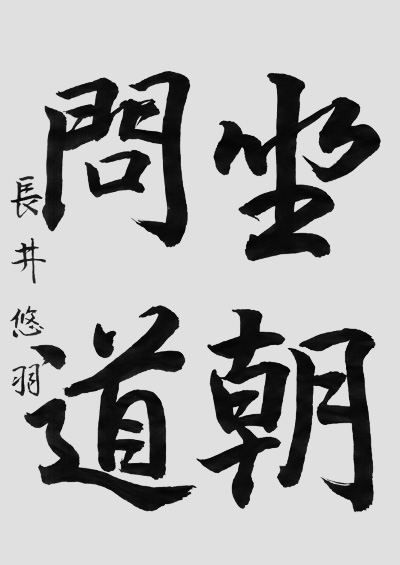 坐朝
問道
長井悠羽